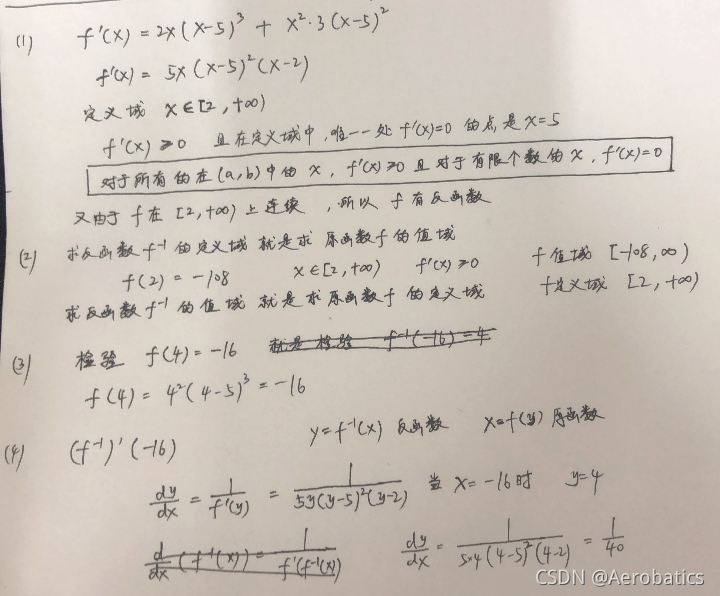 (1) f'(x) = 2x(x-5)³ + x²·3(x-5)²
f'(x) = 5x(x-5)²(x-2)
定义域 x∈[2,+∞)
f'(x) ≥0 且在定义域中,唯一一处 f'(x)=0 的点是 x=5
对于所有的在(a,b)中的 x, f'(x) ≥0 且对于有限个数的 x, f'(x)=0
又由于 f 在 [2,+∞) 上连续,所以 f 有反函数
(2) 求反函数 f⁻¹ 的定义域 就是求 原函数 f 的值域
f(2) = -108 x∈[2,+∞) f'(x) ≥0 f 值域 [-108,∞)
求反函数 f⁻¹ 的值域 就是求原函数 f 的定义域 f定义域 [2,+∞)
(3) 检验 f(4) = -16 就是检验 f⁻¹(-16)=4
f(4) = 4²(4-5)³ = -16
(4) (f⁻¹)'(-16) y=f⁻¹(x) 反函数 x=f(y) 原函数
dy/dx = 1/f'(y) = 1/5y(y-5)²(y-2) 当 x=-16时 y=4
d/dx (f⁻¹(x)) = 1/f'(f⁻¹(x)) dy/dx = 1/5×4(4-5)²(4-2) = 1/40
CSDN @Aerobatics